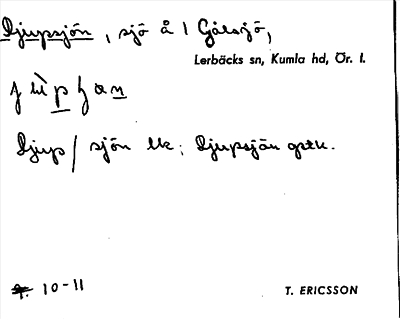 Djupsjön, sjö å 1 Gålsjö,
Lerbäcks sn, Kumla hd, Ör. l.
Djup/sjön lk; Djupsjön gstk.
10-11
T. ERICSSON